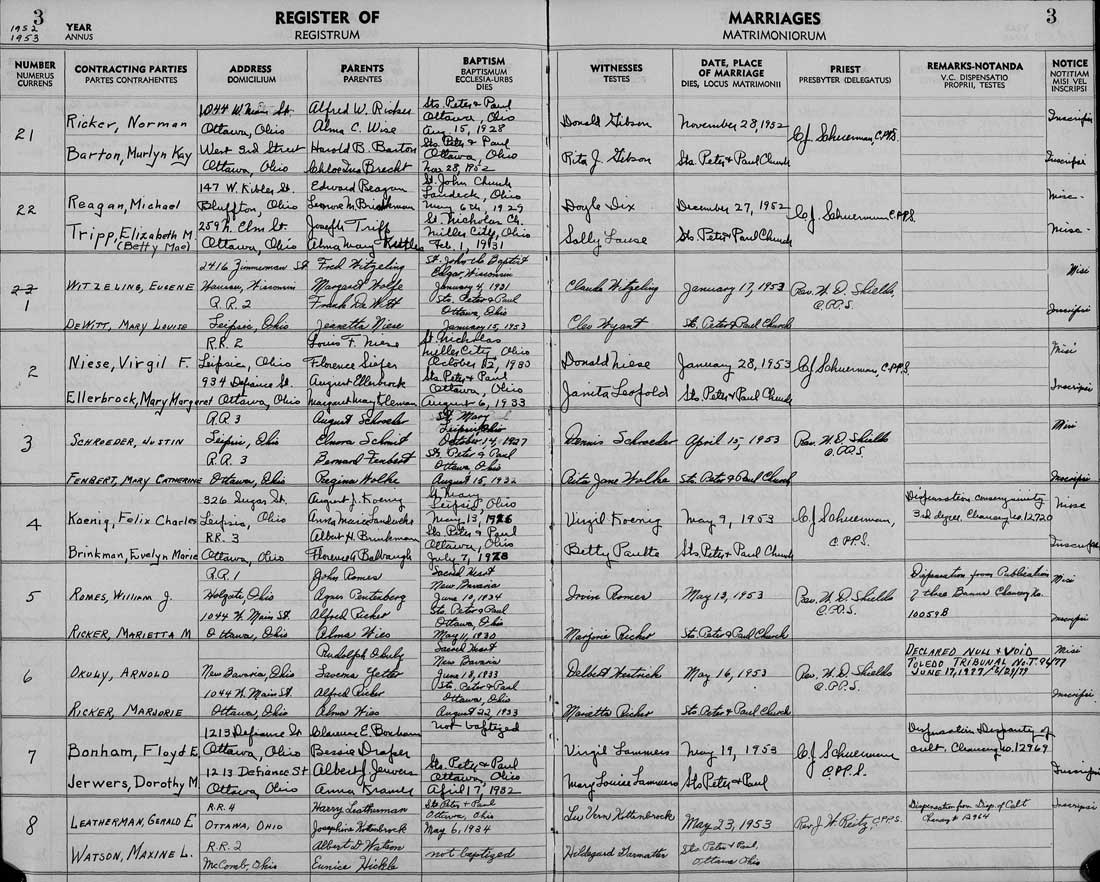 3
1952
1953
YEAR
ANNUS
REGISTER OF
REGISTRUM
MARRIAGES
MATRIMONIORUM
3
NUMBER
NUMERUS
CURRENS
CONTRACTING PARTIES
PARTES CONTRAHENTES
ADDRESS
DOMICILIUM
PARENTS
PARENTES
BAPTISM
BAPTISMUM
ECCLESIA-URBS
DIES
WITNESSES
TESTES
DATE, PLACE
OF MARRIAGE
DIES, LOCUS MATRIMONII
PRIEST
PRESBYTER (DELEGATUS)
REMARKS-NOTANDA
V.C. DISPENSATIO
PROPRII, TESTES
NOTICE
NOTITIAM
MISI VEL
INSCRIPSI
21
Ricker, Norman
Barton, Murlyn Kay
1044 W. Main St.
Ottawa, Ohio
West 3rd Street
Ottawa, Ohio
Alfred W. Ricker
Alma C. Wise
Harold B. Barton
Brecht
Sts. Peter & Paul
Ottawa, Ohio
Aug 15, 1928
Sts Peter & Paul
Ottawa, Ohio
Nov 28, 1952
Donald Gibson
Rita J. Gibson
November 28, 1952
Sts. Peter & Paul Church
C.J. Schuerman, C.PP.S.
Inscripsi
Inscripsi
22
Reagan, Michael
Tripp, Elizabeth M
(Betty Mae)
147 W. Kibler St.
Bluffton, Ohio
259 N. Elm St.
Ottawa, Ohio
Edward Reagan
M. Brickman
Joseph Tripp
Alma Mary
St. John Church
Landeck, Ohio
May 6th, 1929
St Nicholas Ch.
Miller City, Ohio
Feb. 1, 1931
Doyle Dix
Sally Lause
December 27, 1952
Sts. Peter & Paul Church
C.J. Schuerman, C.PP.S.
Misi
Misi
22
1
WITZELING, EUGENE
DEWITT, MARY LOUISE
2416 Zimmerman St.
Wausau, Wisconsin
R.R. 2
Leipsic, Ohio
Fred Witzeling
Margaret Wolfe
Frank De Witt
Jeanetta Niese
St. John the Baptist
Edgar, Wisconsin
January 4, 1931
Sts. Peter & Paul
Ottawa, Ohio
January 15, 1953
Claude Witzeling
Cleo Wyant
January 17, 1953
Sts. Peter & Paul Church
Rev. W. D. Shields,
C.PP.S.
Misi
Inscripsi
2
Niese, Virgil F.
Ellerbrock, Mary Margaret
R.R. 2
Leipsic, Ohio
934 Defiance St.
Ottawa, Ohio
Louis F. Niese
Florence Siefer
August Ellerbrock
Margaret May Kleman
St. Nicholas
Miller City, Ohio
October 12, 1930
Sts. Peter & Paul
Ottawa, Ohio
August 6, 1933
Donald Niese
Janita Leopold
January 28, 1953
Sts. Peter & Paul Church
C.J. Schuerman, C.PP.S.
Misi
Inscripsi
3
SCHROEDER, JUSTIN
FENBERT, MARY CATHERINE
R.R. 3
Leipsic, Ohio
R.R. 3
Ottawa, Ohio
August Schroeder
Elnora Schmit
Bernard Fenbert
Regina Wolke
St. Mary
Leipsic, Ohio
October 14, 1927
Sts. Peter & Paul
Ottawa, Ohio
August 15, 1932
Dennis Schroeder
Rita Jane Wolke
April 15, 1953
Sts Peter & Paul Church
Rev. W. D. Shields
C.PP.S.
Misi
Inscripsi
4
Koenig, Felix Charles
Brinkman, Evelyn Marie
326 Sugar St.
Leipsic, Ohio
RR. 3
Ottawa, Ohio
August J. Koenig
Anna Marie
Albert H. Brinkman
Florence
St Mary
Leipsic, Ohio
May 13, 1926
Sts Peter & Paul
Ottawa, Ohio
July 7, 1928
Virgil Koenig
Betty Paulte
May 9, 1953
Sts Peter & Paul Church
C.J. Schuerman,
C.PP.S.
Dispensation consanguinity
3rd degree. Chancery No. 12720
Misi
Inscripsi
5
ROMES, WILLIAM J.
RICKER, MARIETTA M
R.R. 1
Holgate, Ohio
1044 W. Main St.
Ottawa, Ohio
John Romes
Agnes
Alfred Ricker
Alma Wies
Sacred Heart
New Bavaria
June 10, 1934
Sts. Peter & Paul
Ottawa, Ohio
May 11, 1930
Romes
Marjorie Ricker
May 13, 1953
Sts Peter & Paul Church
Rev. W. D. Shields
C.PP.S.
Dispensation from Publication
of three Banns Chancery No.
10059B
Misi
Inscripsi
6
OKULY, ARNOLD
RICKER, MARJORIE
New Bavaria, Ohio
1044 W. Main St.
Ottawa, Ohio
Rudolph Okuly
Laverna Yetter
Alfred Ricker
Alma Wies
Sacred Heart
New Bavaria
June 18, 1933
Sts. Peter & Paul
Ottawa, Ohio
August 22, 1933
Delbert Westrick
Marietta Ricker
May 16, 1953
Sts Peter & Paul Church
Rev. W. D. Shields
C.PP.S.
DECLARED NULL & VOID
TOLEDO TRIBUNAL
Misi
Inscripsi
7
Bonham, Floyd E.
Jerwers, Dorothy M.
1213 Defiance St
Ottawa, Ohio
1213 Defiance St
Ottawa, Ohio
Clarence E. Bonham
Bessie Draper
Albert J. Jerwers
Anna Kramer
Not baptized
Sts. Peter & Paul
Ottawa, Ohio
April 17, 1932
Virgil Lammers
Mary Louise Lammers
May 19, 1953
Sts. Peter & Paul
C.J. Schuerman
C.PP.S.
Dispensation Disparity of
cult. Chancery No. 12969
Inscripsi
8
LEATHERMAN, GERALD E
WATSON, MAXINE L.
R.R. 4
OTTAWA, OHIO
R.R. 2
McComb, Ohio
Harry Leatherman
Josephine
Albert D Watson
Eunice Hickle
Sts Peter + Paul
Ottawa, Ohio
May 6, 1934
not baptized
Lu Vern Kottenbrock
Hildegard
May 23, 1953
Sts Peter + Paul,
Ottawa Ohio
Rev J. W. Reitz, C.PP.S.
Dispensation for Disp. of Cult
Chancery # 12964
Inscripsi